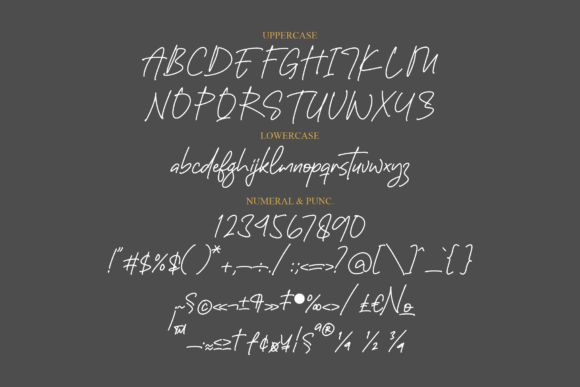 UPPERCASE
ABCDEFGHIJKLM
NOPQRSTUVWXYZ
LOWERCASE
abcdefghijklmnopqrstuvwxyz
NUMERAL & PUNC.
1234567890
!"#$%$()*+,-÷./:;<=>?@[\]^_`{}
¡~§©«¬±¶»‡•‰<>/£€№
™-≈≤≥†ƒ¢¤¥¦§ª®¼ ½ ¾